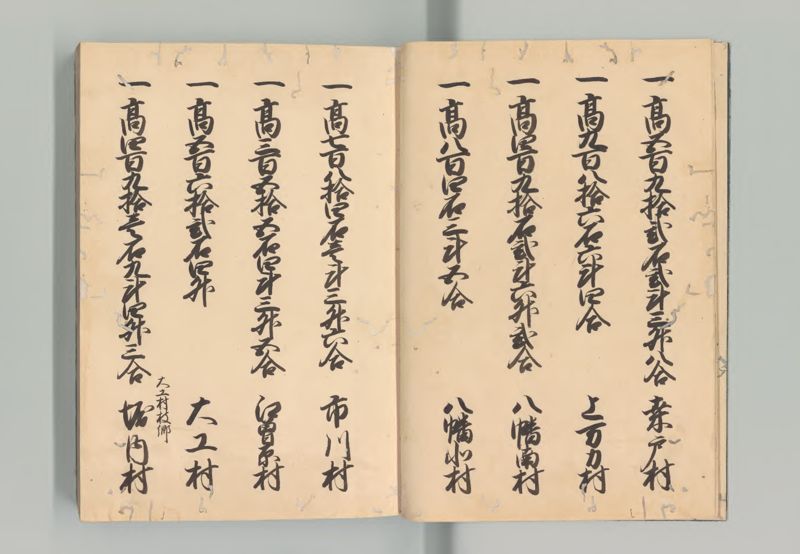 一高五百九拾弐石弐斗三升八合 桑戸村
一高九百八拾六石六斗四合 上万力村
一高四百九拾石弐斗六升弐合 八幡南村
一高八百四石三斗五合 八幡北村
一高七百八拾四石壱斗三升六合 市川村
一高三百五拾五石四斗三升五合 江曽原村
一高五百六拾弐石四升 大工村
一高四百九拾壱石九斗四升三合 大工村枝郷 堀内村